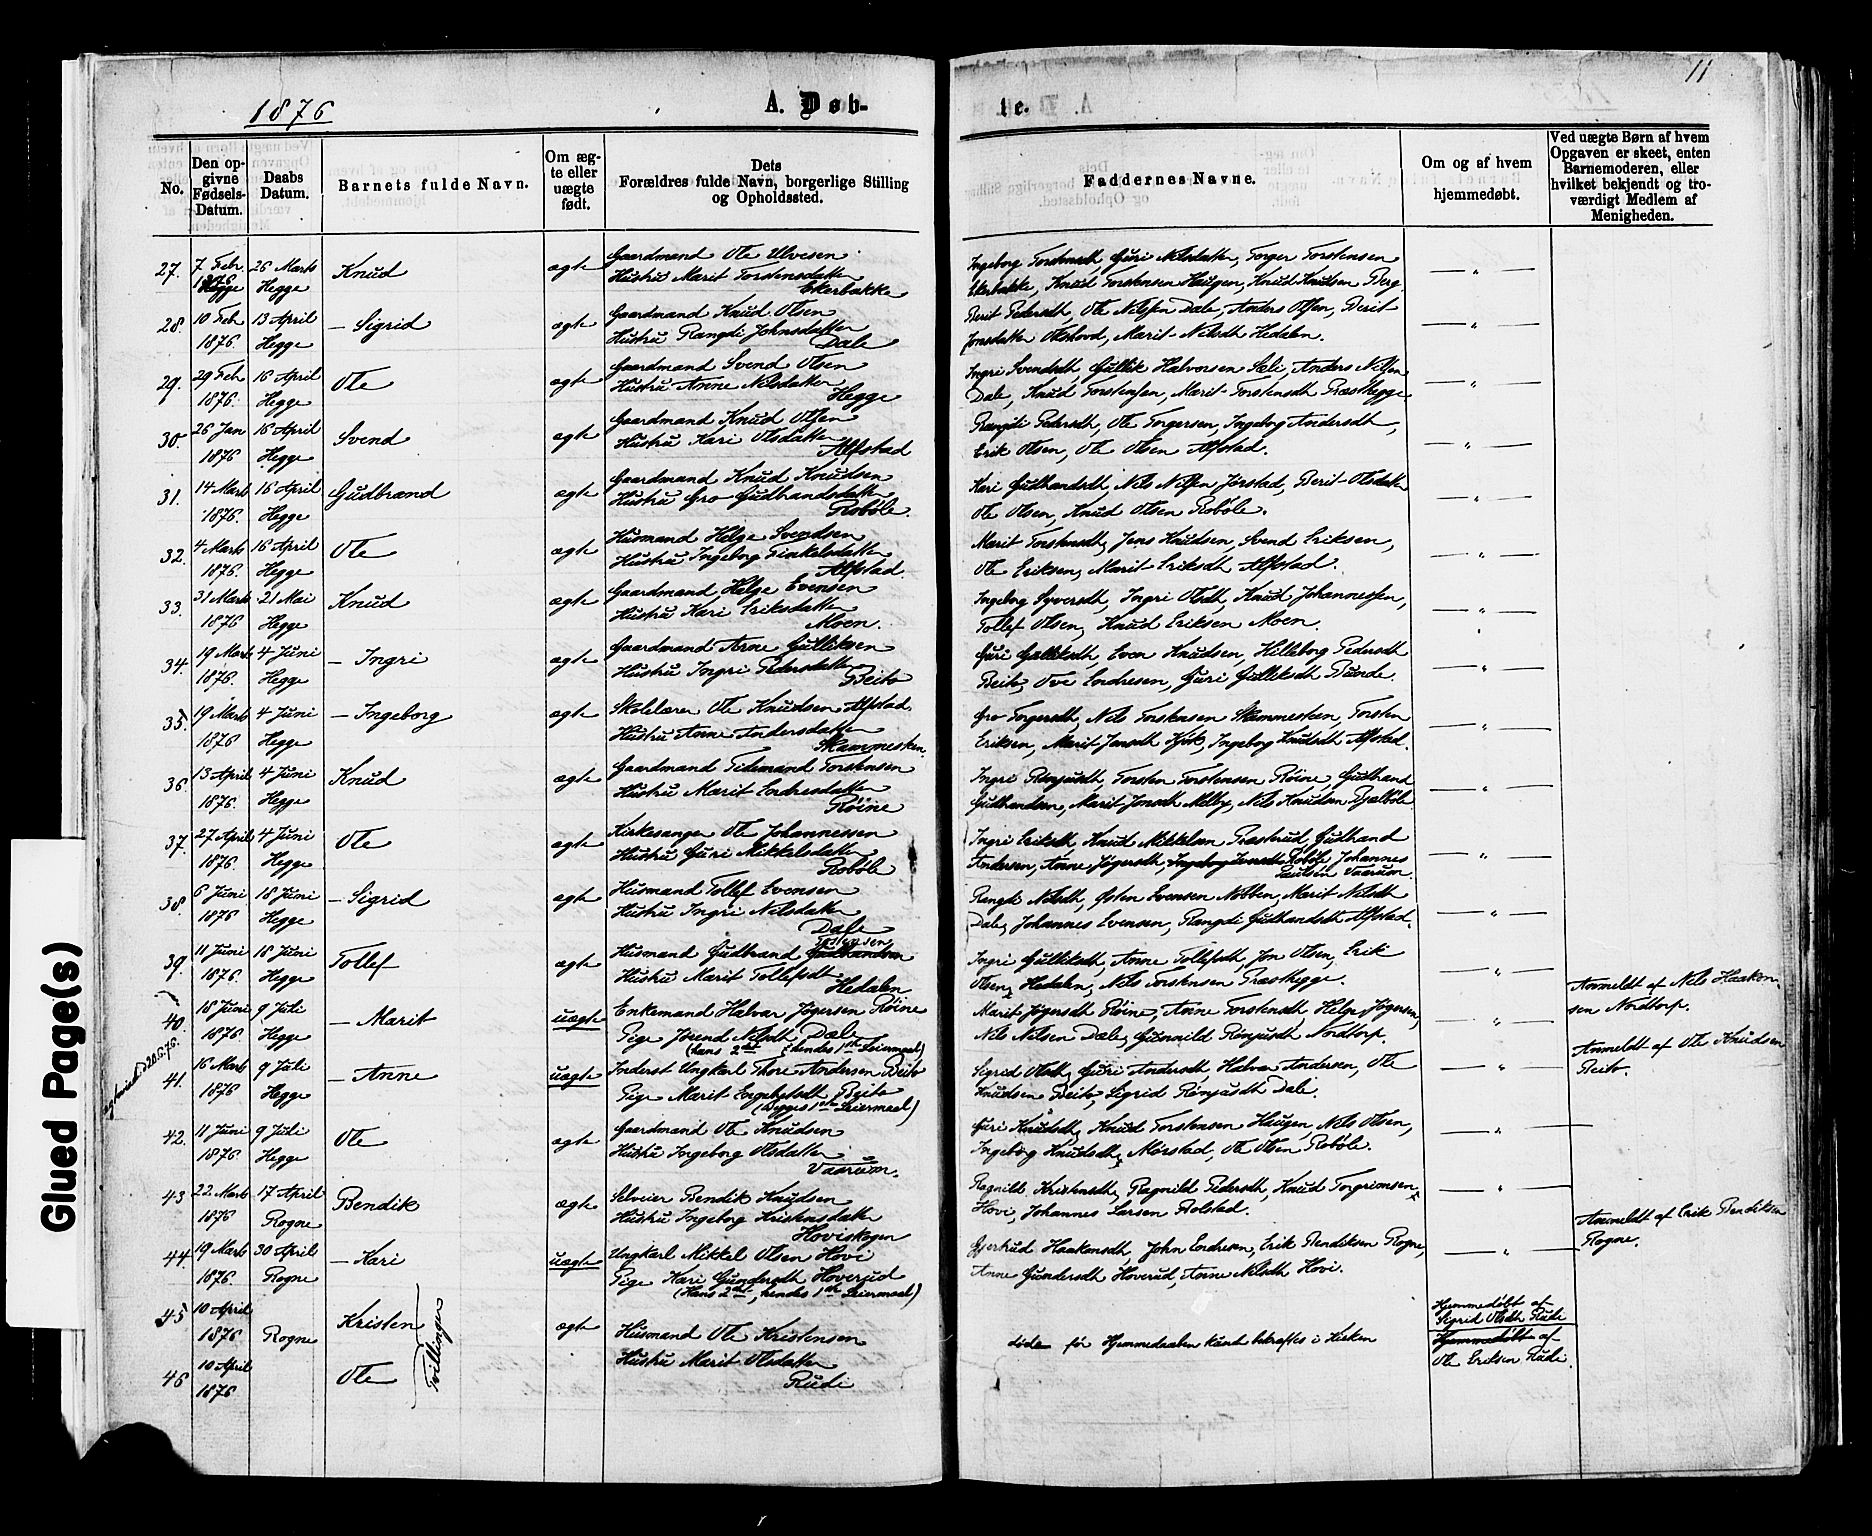 11
1876
A. Døb-
te.
No.
Den op-
givne
Fødsels-
Datum.
Daabs
Datum.
Barnets fulde Navn.
Om æg-
te eller
uægte
født.
Dets
Forældres fulde Navn, borgerlige Stilling
og Opholdssted.
Faddernes Navne.
Om og af hvem
hjemmedøbt.
Ved uægte Børn af hvem
Opgaven er skeet, enten
Barnemoderen, eller
hvilket bekjendt og tro-
værdigt Medlem af
Menigheden.
27. 7 Febr. 26 Marts Knud ægte Gaardmand Ole Ulvesen Ingeborg Torstensdth Guri Nilsdatter, Torger Torstensen
1876 Hegge Hustru Marit Torstensdatter Ekerbakke, Knud Torstensen Haugen, Knud Knudsen Berg
Ekerbakke
28. 10 Feb 13 April – Sigrid ægte Gaardmand Knud Olsen Berit Pedersdth, Ole Nilsen Dale, Anders Olsen, Berit
1876. Hegge Hustru Rangdi Johnsdatter Jonsdatter Okshovd, Marit Nilsdth Hedalen.
Dale
29. 29 Feb 16 April Ole ægte Gaardmand Svend Olsen Ingri Svendsdth Gullik Halvorsen Sæli, Anders Nilsen
1876. Hegge Hustru Anne Nilsdatter Dale, Knud Torstensen, Marit Torstensdth Præsthegge
Hegge
30. 26 Jan 16 April Svend ægte Gaardmand Knud Olsen Rangdi Pedersdth, Ole Torgersen, Ingeborg Andersdth,
1876 Hegge Hustru Kari Olsdatter Erik Olsen, Ole Olsen Alfstad.
Alfstad
31. 14 Mart 16 April Gudbrand ægte Gaardmand Knud Knudsen Kari Gudbrandsdth, Nils Nilsen Jørstad, Berit Olsdatter
1876. Hegge Hustru Gro Gudbrandsdatter Ole Olsen, Knud Olsen Robøle.
Robøle.
32. 4 Marts 16 April Ole ægte Husmand Helge Svendsen Marit Torstensdth, Jens Knudsen, Svend Eriksen,
1876. Hegge Hustru Ingeborg Tinkelsdatter Ole Eriksen, Marit Eriksdth Alfstad.
Alfstad.
33. 31 Marts 21 Mai Knud ægte Gaardmand Helge Evensen Ingeborg Syversdth, Ingri Olsdth, Knud Johannessen,
1876 Hegge Hustru Kari Eriksdatter Tollef Olsen, Knud Eriksen Moen.
Moen.
34. 19 Mart 4 Juni – Ingri ægte Gaardmand Arne Gulliksen Guri Gulliksdth, Even Knudsen, Hilleborg Pedersdth
1876. Hegge Hustru Ingri Pedersdatter Beito, Ove Endresen, Guri Gulliksdth Bunde.
Beito
35. 19 Mart 4 Juni – Ingeborg ægte Skolelærer Ole Knudsen Alfstad Gro Torgersdth, Nils Torstensen Skammesten, Torsten
1876 Hegge Hustru Anne Andersdatter Eriksen, Marit Jonsdth Kjøk, Ingeborg Knudsdth Alfstad.
Skammesten
36. 13 April 4 Juni Knud ægte Gaardmand Tidemand Torstensen Ingri Rønjusdth, Torsten Torstensen Røine, Gudbrand
1876. Hegge Hustru Marit Endresdatter Gudbrandsen, Marit Jonsdth Melby, Nils Knudsen Bjælbøle
Røine
37. 27 April 4 Juni Ole ægte Kirkesanger Ole Johannessen Ingri Eriksdth, Knud Mikkelsen Præstrud Gudbrand
1876 Hegge Hustru Guri Mikkelsdatter Andersen, Anne Jøgersdth, Johannes
Robøle Paulsen Vaarum.
38. 6 Juni 18 Juni – Sigrid ægte Husmand Tollef Evensen Rangdi Nilsdth, Østen Evensen Nøbben, Marit Nilsdth
1876 Hegge Hustru Ingri Nilsdatter Dale, Johannes Evensen, Rangdi Gudbrandsdth Alfstad.
Dale
39. 11 Juni 18 Juni Tollef ægte Husmand Gudbrand Gudbrandsen Ingri Gulliksdth, Anne Tollefsdth, Jon Olsen, Erik
1876. Hegge Hustru Marit Tollefsdt Olsen, Hedalen, Nils Torstensen Præsthegge.
Hedalen
40. 18 Juni 9 Juli – Marit uægte Enkemand Halvar Jøgersen Røine Marit Jøgersdth Røine, Anne Torstensdth Helge Jøgersen, Anmeldt af Nils Haakon-
1876. Hegge Pige Jørend Nilsdt Dale Nils Nilsen Dale, Gunnild Rønjusdth Nordtorp. sen Nordtorp.
(hans 2det, hendes 1ste Leiermaal)
41. 16 Marts 9 Juli – Anne uægte Inderst Ungkarl Thore Andersen Beito Sigrid Olsdth, Guri Andersdth, Halvar Andersen, Ole Anmeldt af Ole Knudsen
1876 Hegge Pige Marit Engebretsdt Beito Knudsen Beito, Sigrid Rønjusdth Dale. Beito.
(Begges 1ste Leiermaal)
42. 11 Juni 9 Juli Ole ægte Gaardmand Ole Knudsen Guri Knudsdth, Knud Torstensen Haugen, Nils Olsen,
1876 Hegge Hustru Ingeborg Olsdatter Ingeborg Knudsdth, Mørstad, Ole Olsen Robøle.
Vaarum.
43 22 Mart 17 April Bendik ægte Selveier Bendik Knudsen Ragnild Kristensdth, Ragnild Pedersdth, Knud Torgrimsen
1876 Rogne Hustru Ingeborg Kristensdatter Hovi, Johannes Larsen Bolstad.
Hoviskogen
44. 19 Mart 30 April – Kari uægte Ungkarl Mikkel Olsen Hovi Gjertrud Haakansdth, John Endresen, Erik Bendiksen Rogne, Anmeldt af Erik Bendiksen
1876. Rogne Pige Kari Gundersdth Hoverud Anne Gundersdth Hoverud, Anne Nilsdth Hovi. Rogne.
(Hans 2det, hendes 1ste Leiermaal)
45 10 April Kristen ægte Husmand Ole Kristensen døde før Hjemmedaaben kunde bekræftes i Kirken Hjemmedøbt af
1876 Rogne Hustru Marit Olsdatter Sigrid Olsdth Rudi
46 10 April Ole Rudi Hjemmedøbt af
1876 Ole Eriksen Rudi.
Tvillinger
Glued Page(s)